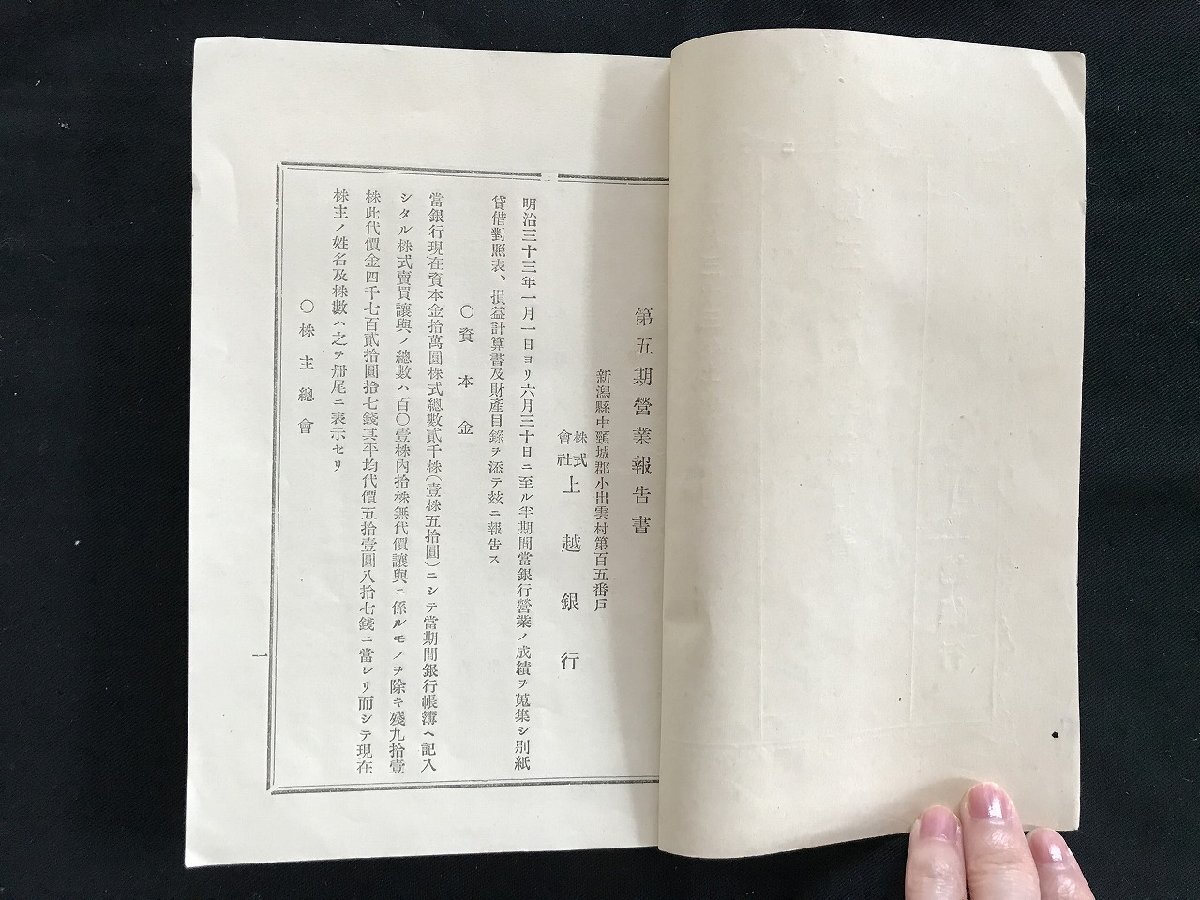 第五期營業報告書
新潟縣中頸城郡小出雲村第百五番戸
株式會社上越銀行
明治三十三年一月一日ヨリ六月三十日ニ至ル半期間當銀行營業ノ成績ヲ蒐集シ別紙
貸借對照表、損益計算書及財產目錄ヲ添テ玆ニ報告ス
〇資本金
當銀行現在資本金拾萬圓株式總數貳千株(壹株五拾圓)ニシテ當期間銀行帳簿ヘ記入
シタル株式賣買讓與ノ總數ハ百〇壹株內拾株無代價讓與ニ係ルモノヲ除キ殘九拾壹
株此代價金四千七百貳拾圓拾七錢其平均代價五拾壹圓八拾七錢ニ當レリ而シテ現在
株主ノ姓名及株數ハ之ヲ册尾ニ表示セリ
〇株主總會
一